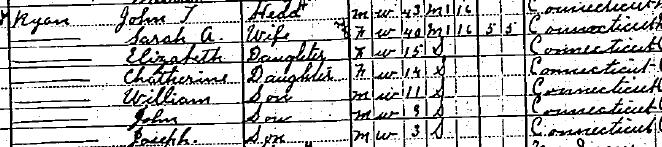 Ryan John T Head m w 43 M 16 Connecticut
Sarah A. Wife F w 40 M 16 5 5 Connecticut
Elizabeth Daughter F w 15 S Connecticut
Chatherine Daughter F w 14 S Connecticut
William Son m w 11 S Connecticut
John Son m w 9 S Connecticut
Joseph. Son m w 3 S Connecticut